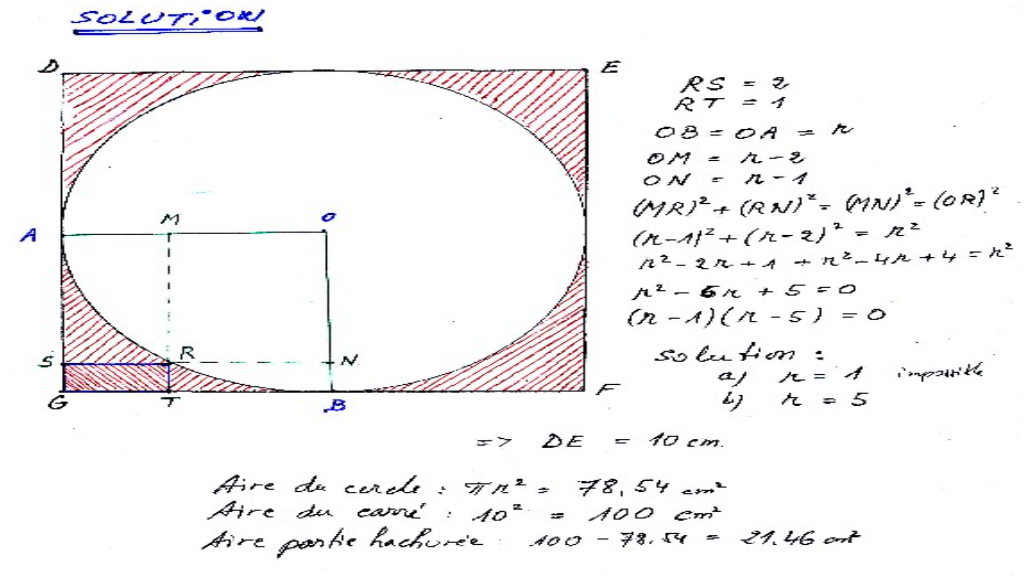 SOLUTION
D E
A M O
S R N
G T B F
RS = 2
RT = 1
OB = OA = r
OM = r-2
ON = r-1
(MR)² + (RN)² = (MN)² = (OR)²
(r-1)² + (r-2)² = r²
r² - 2r + 1 + r² - 4r + 4 = r²
r² - 6r + 5 = 0
(r-1)(r-5) = 0
solution :
a) r = 1 impossible
b) r = 5
=> DE = 10 cm.
Aire du cercle : πr² = 78,54 cm²
Aire du carré : 10² = 100 cm²
Aire partie hachurée 100 - 78.54 = 21.46 cm²